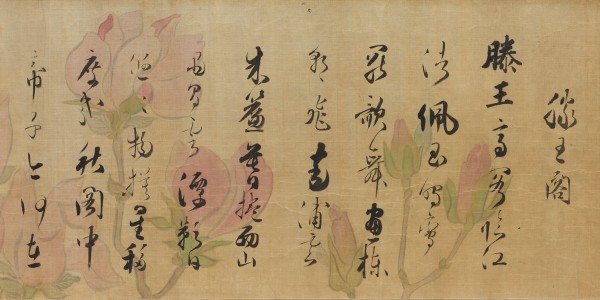 滕王閣
滕王高閣臨江
渚佩玉鳴鸞
罷歌舞画棟
朝飛南浦雲
朱簾暮捲西山
雨閑雲潭影日
悠々物換星移
度幾秋閣中
帝子今何在